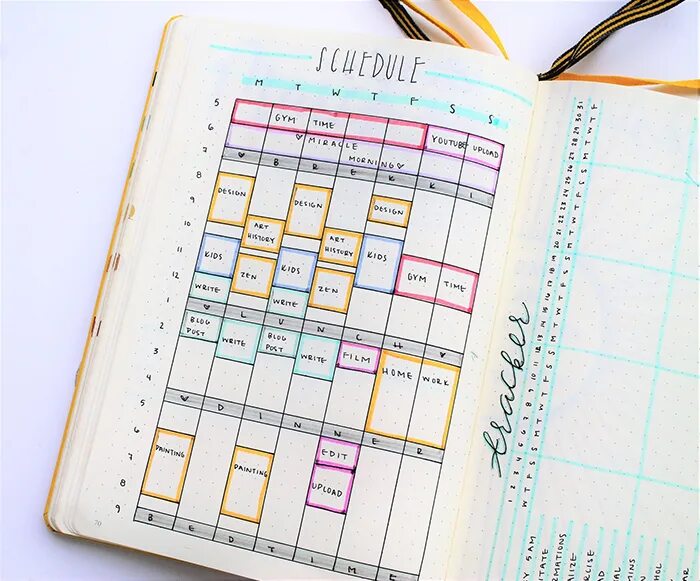 SCHEDULE
M T W T F S S
5
GYM TIME
6
♡ MIRACLE
YOUTUBE UPLOAD
7
MORNING ♡
♡ B R E K K I
8
DESIGN DESIGN DESIGN
9
10
ART HISTORY ART HISTORY
11
KIDS KIDS KIDS
ZEN ZEN GYM TIME
12
WRITE WRITE
1
♡ L U N C H ♡
2
BLOG POST WRITE BLOG POST WRITE FILM
3
HOME WORK
4
5
♡ D I N N E R
6
PAINTING PAINTING EDIT
7
UPLOAD
8
9
B E D T I M E
70
tracker
1 2 3 4 5 6 7 8 9 10 11 12 13 14 15 16 17 18 19 20 21 22 23 24 25 26 27 28 29 30 31
W T F S S M T W T F S S M T W T F S S M T W T F S S M T W T F
Y 5AM
TATE
RMATIONS
LIZE
RCISE